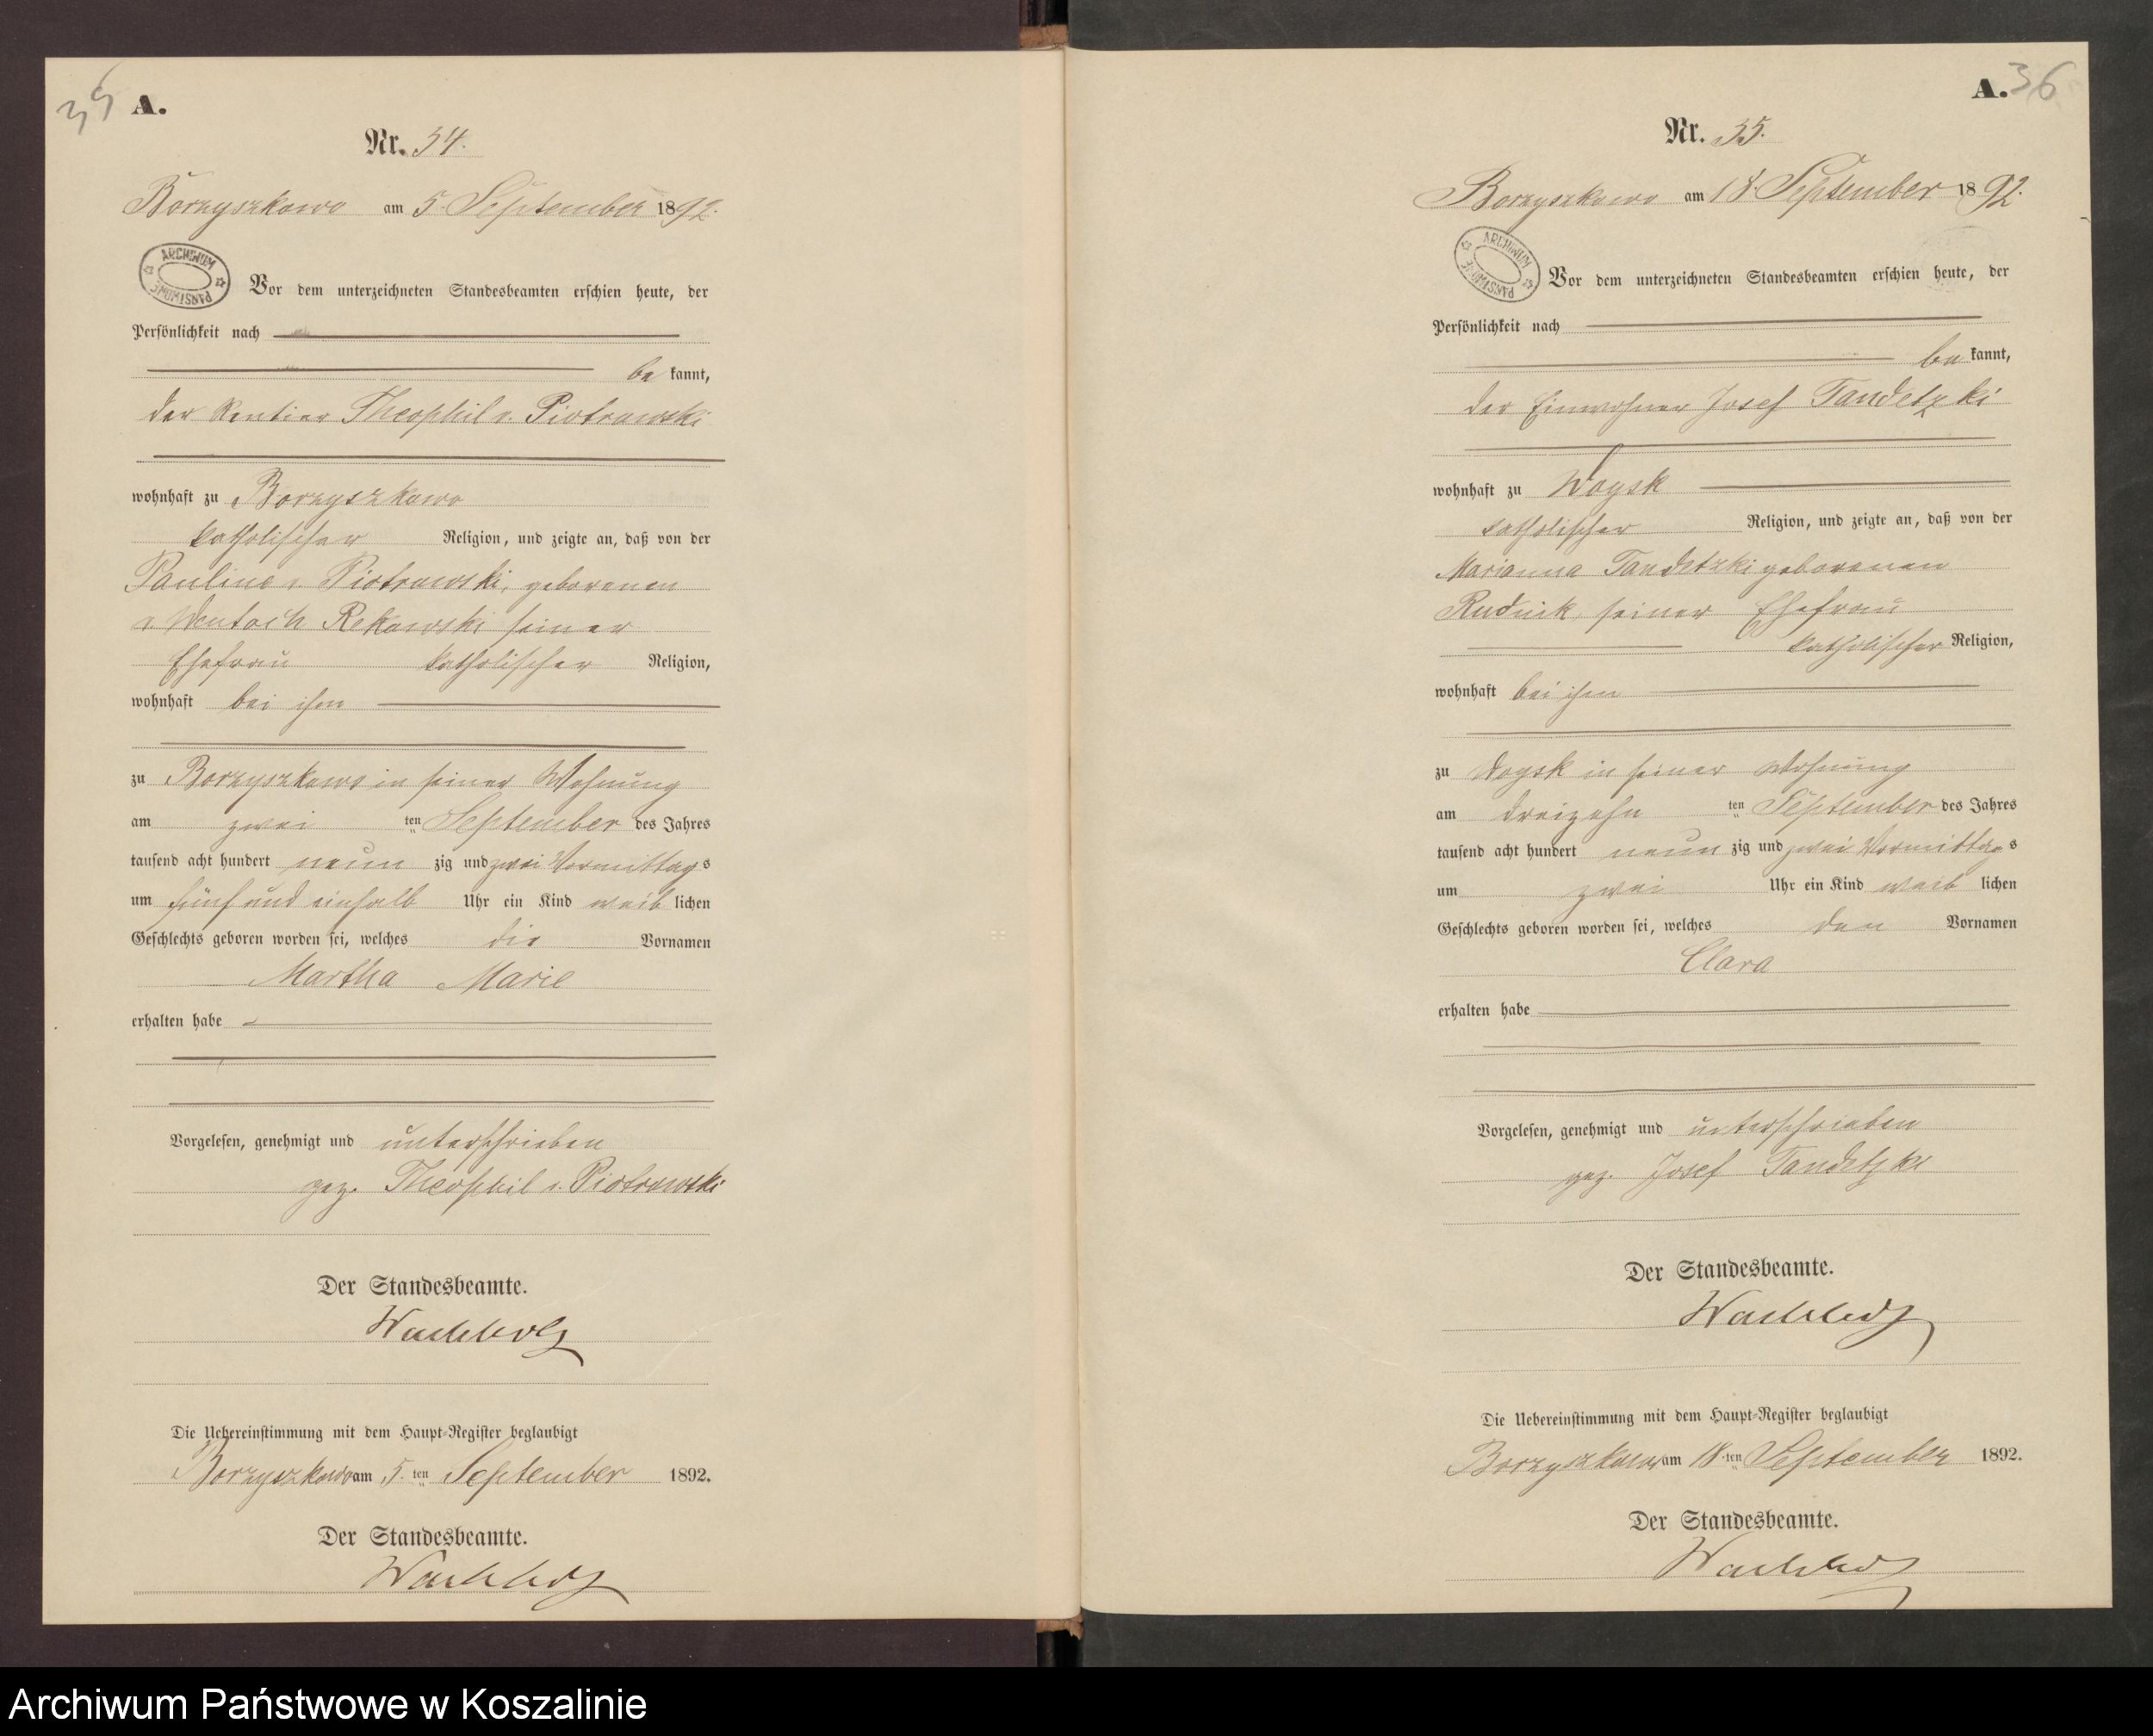 35 A.
Nr. 34.
Borzyszkowo am 5 September 1892.
ARCHIWUM PAŃSTWOWE
Vor dem unterzeichneten Standesbeamten erschien heute, der
Persönlichkeit nach
be kannt,
der Rentier Theophil v. Piotrowski
wohnhaft zu Borzyszkowo
katholischer Religion, und zeigte an, daß von der
Pauline v. Piotrowski, geborenen
v Wentoch Rekowski seiner
Ehefrau katholischer Religion,
wohnhaft bei ihm
zu Borzyszkowo in seiner Wohnung
am zwei ten September des Jahres
tausend acht hundert neun zig und zwei Vormittags
um fünf und einhalb Uhr ein Kind weib lichen
Geschlechts geboren worden sei, welches die Vornamen
Martha Marie
erhalten habe
Vorgelesen, genehmigt und unterschrieben
gez. Theophil v. Piotrowski
Der Standesbeamte.
Wachholz
Die Uebereinstimmung mit dem Haupt-Register beglaubigt
Borzyszkowo am 5. ten September 1892.
Der Standesbeamte.
Wachholz
A. 36
Nr. 35.
Borzyszkowo am 18 September 1892.
ARCHIWUM PAŃSTWOWE
Vor dem unterzeichneten Standesbeamten erschien heute, der
Persönlichkeit nach
be kannt,
der Einwohner Josef Tandetzki
wohnhaft zu Woysk
katholischer Religion, und zeigte an, daß von der
Marianna Tandetzki geborenen
Rudnik, seiner Ehefrau
katholischer Religion,
wohnhaft bei ihm
zu Woysk in seiner Wohnung
am dreizehn ten September des Jahres
tausend acht hundert neun zig und zwei Vormittags
um zwei Uhr ein Kind weib lichen
Geschlechts geboren worden sei, welches den Vornamen
Clara
erhalten habe
Vorgelesen, genehmigt und unterschrieben
gez. Josef Tandetzki
Der Standesbeamte.
Wachholz
Die Uebereinstimmung mit dem Haupt-Register beglaubigt
Borzyszkowo am 18 ten September 1892.
Der Standesbeamte.
Wachholz
Archiwum Państwowe w Koszalinie